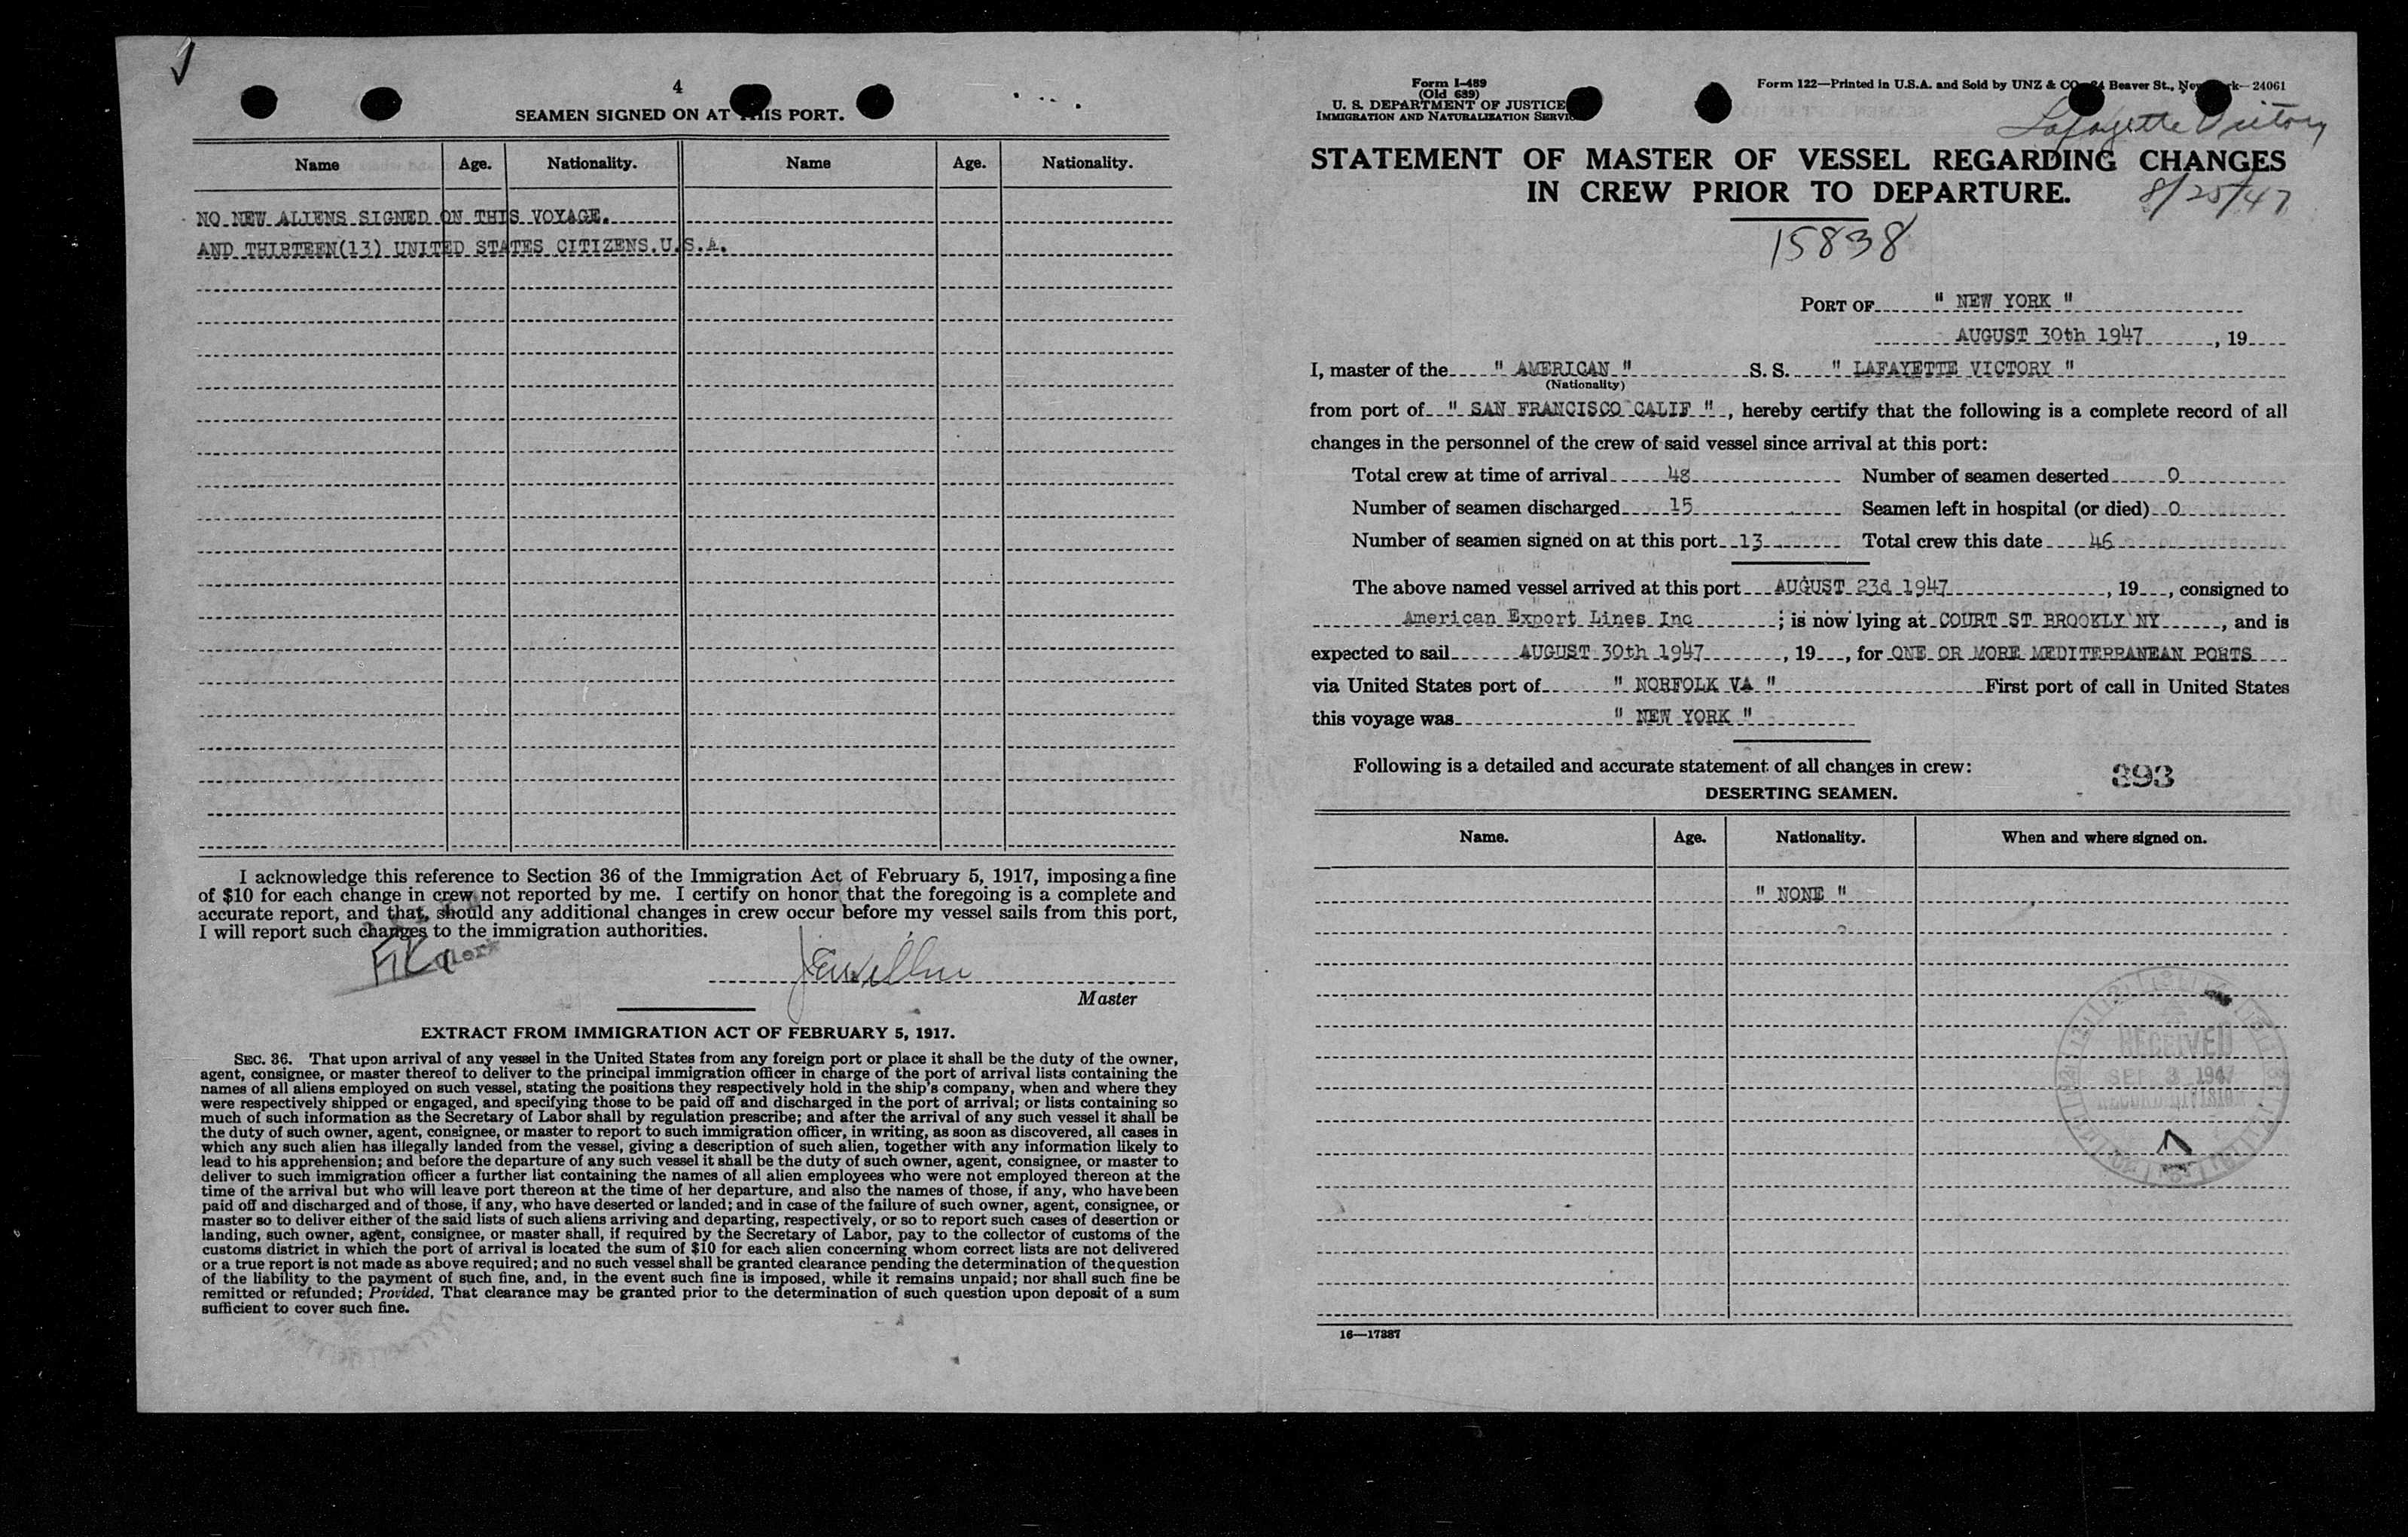 4
SEAMEN SIGNED ON AT THIS PORT.
Name Age. Nationality. Name Age. Nationality.
NO NEW ALIENS SIGNED ON THIS VOYAGE.
AND THIRTEEN(13) UNITED STATES CITIZENS.U.S.A.
I acknowledge this reference to Section 36 of the Immigration Act of February 5, 1917, imposing a fine
of $10 for each change in crew not reported by me. I certify on honor that the foregoing is a complete and
accurate report, and that, should any additional changes in crew occur before my vessel sails from this port,
I will report such changes to the immigration authorities.
Clerk
Master
EXTRACT FROM IMMIGRATION ACT OF FEBRUARY 5, 1917.
SEC. 36. That upon arrival of any vessel in the United States from any foreign port or place it shall be the duty of the owner,
agent, consignee, or master thereof to deliver to the principal immigration officer in charge of the port of arrival lists containing the
names of all aliens employed on such vessel, stating the positions they respectively hold in the ship's company, when and where they
were respectively shipped or engaged, and specifying those to be paid off and discharged in the port of arrival; or lists containing so
much of such information as the Secretary of Labor shall by regulation prescribe; and after the arrival of any such vessel it shall be
the duty of such owner, agent, consignee, or master to report to such immigration officer, in writing, as soon as discovered, all cases in
which any such alien has illegally landed from the vessel, giving a description of such alien, together with any information likely to
lead to his apprehension; and before the departure of any such vessel it shall be the duty of such owner, agent, consignee, or master to
deliver to such immigration officer a further list containing the names of all alien employees who were not employed thereon at the
time of the arrival but who will leave port thereon at the time of her departure, and also the names of those, if any, who have been
paid off and discharged and of those, if any, who have deserted or landed; and in case of the failure of such owner, agent, consignee, or
master so to deliver either of the said lists of such aliens arriving and departing, respectively, or so to report such cases of desertion or
landing, such owner, agent, consignee, or master shall, if required by the Secretary of Labor, pay to the collector of customs of the
customs district in which the port of arrival is located the sum of $10 for each alien concerning whom correct lists are not delivered
or a true report is not made as above required; and no such vessel shall be granted clearance pending the determination of the question
of the liability to the payment of such fine, and, in the event such fine is imposed, while it remains unpaid; nor shall such fine be
remitted or refunded; Provided, That clearance may be granted prior to the determination of such question upon deposit of a sum
sufficient to cover such fine.
Form I-489
(Old 689)
U. S. DEPARTMENT OF JUSTICE
IMMIGRATION AND NATURALIZATION SERVICE
Form 122—Printed in U.S.A. and Sold by UNZ & CO. 24 Beaver St., New York—24061
Lafayette Victory
STATEMENT OF MASTER OF VESSEL REGARDING CHANGES
IN CREW PRIOR TO DEPARTURE.
8/25/47
15838
PORT OF " NEW YORK "
AUGUST 30th 1947 , 19
I, master of the " AMERICAN " S. S. " LAFAYETTE VICTORY "
(Nationality)
from port of " SAN FRANCISCO CALIF " , hereby certify that the following is a complete record of all
changes in the personnel of the crew of said vessel since arrival at this port:
Total crew at time of arrival 48 Number of seamen deserted 0
Number of seamen discharged 15 Seamen left in hospital (or died) 0
Number of seamen signed on at this port 13 Total crew this date 46
The above named vessel arrived at this port AUGUST 23d 1947 , 19 , consigned to
American Export Lines Inc ; is now lying at COURT ST BROOKLY NY , and is
expected to sail AUGUST 30th 1947 , 19 , for ONE OR MORE MEDITERRANEAN PORTS
via United States port of " NORFOLK VA " First port of call in United States
this voyage was " NEW YORK "
Following is a detailed and accurate statement of all changes in crew:
393
DESERTING SEAMEN.
Name. Age. Nationality. When and where signed on.
" NONE "
RECEIVED
SEP 3 1947
RECORD DIVISION
16—17387